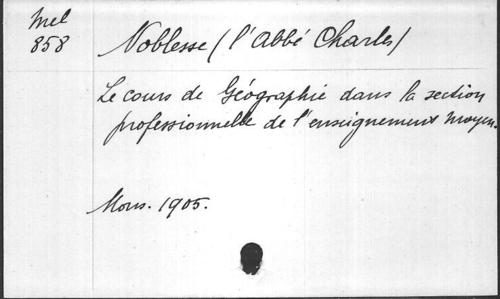 Mel
858
Noblesse (l'abbé Charles)
Le cours de Géographie dans la section
professionnelle de l'enseignement moyen.
Mons. 1905.